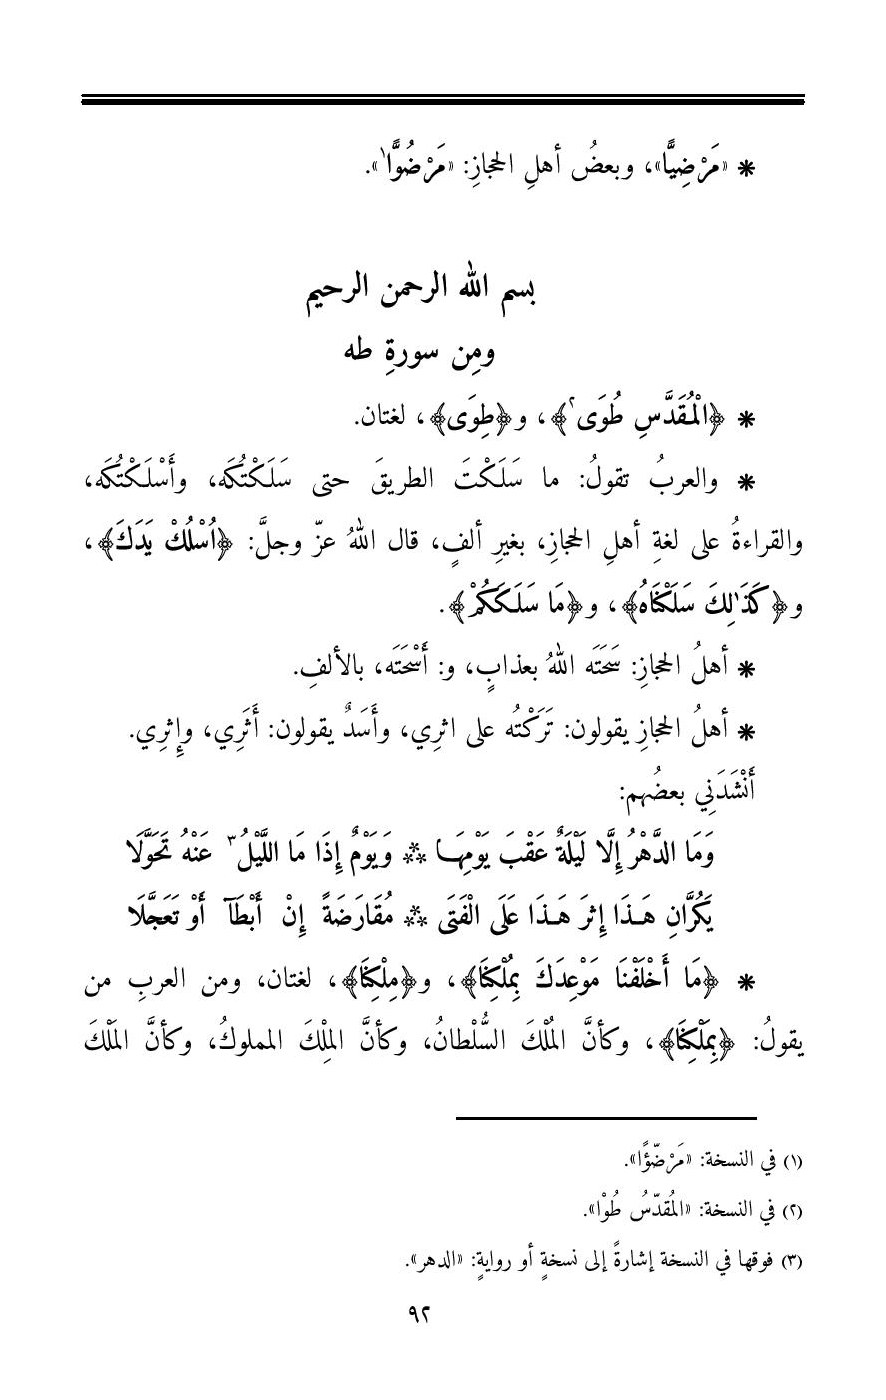 * «مَرْضِيًّا»، وبعضُ أهلِ الحجازِ: «مَرْضُوًّا١».
بسم الله الرحمن الرحيم
ومِن سورةِ طه
* ﴿الْمُقَدَّسِ طُوَى٢﴾، و﴿طِوَى﴾، لغتان.
* والعربُ تقولُ: ما سَلَكْتَ الطريقَ حتى سَلَكْتُكَه، وأَسْلَكْتُكَه،
والقراءةُ على لغةِ أهلِ الحجازِ، بغيرِ ألفٍ، قال اللهُ عزّ وجلَّ: ﴿اُسْلُكْ يَدَكَ﴾،
و﴿كَذَٰلِكَ سَلَكْنَاهُ﴾، و﴿مَا سَلَكَكُمْ﴾.
* أهلُ الحجازِ: سَحَتَه اللهُ بعذابٍ، و: أَسْحَتَه، بالألفِ.
* أهلُ الحجازِ يقولون: تَرَكْتُه على اثرِي، وأَسَدٌ يقولون: أَثَرِي، وإِثرِي.
أَنْشَدَنِي بعضُهم:
وَمَا الدَّهْرُ إِلَّا لَيْلَةٌ عَقْبَ يَوْمِهَـا ** وَيَوْمٌ إِذَا مَا اللَّيْلُ٣ عَنْهُ تَحَوَّلَا
يَكُرَّانِ هَـذَا إِثرَ هَـذَا عَلَى الْفَتَى ** مُقَارَضَةً إِنْ أَبْطَآ أَوْ تَعَجَّلَا
* ﴿مَا أَخْلَفْنَا مَوْعِدَكَ بِمُلْكِنَا﴾، و﴿مِلْكِنَا﴾، لغتان، ومن العربِ من
يقولُ: ﴿بِمَلْكِنَا﴾، وكأنَّ المُلْكَ السُّلْطانُ، وكأنَّ المِلْكَ المملوكُ، وكأنَّ المَلْكَ
(١) في النسخة: «مَرْضّؤًا».
(٢) في النسخة: «المُقدّسُ طُوْا».
(٣) فوقها في النسخة إشارةً إلى نسخةٍ أو روايةٍ: «الدهر».
٩٢